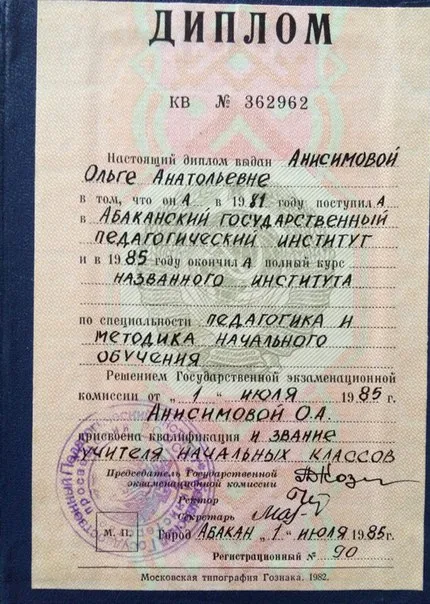 ДИПЛОМ
КВ № 362962
Настоящий диплом выдан Анисимовой
Ольге Анатольевне
в том, что онА в 1981 году поступилА
в Абаканский государственный
педагогический институт
и в 1985 году окончилА полный курс
названного института
по специальности педагогика и
методика начального
обучения
Решением Государственной экзаменационной
комиссии от „1" июля 1985 г.
Анисимовой О.А.
присвоена квалификация и звание
учителя начальных классов
Председатель Государственной
экзаменационной комиссии
Ректор
Секретарь
М. П.
Город Абакан „1" июля 1985 г.
Регистрационный № 90
Московская типография Гознака. 1982.